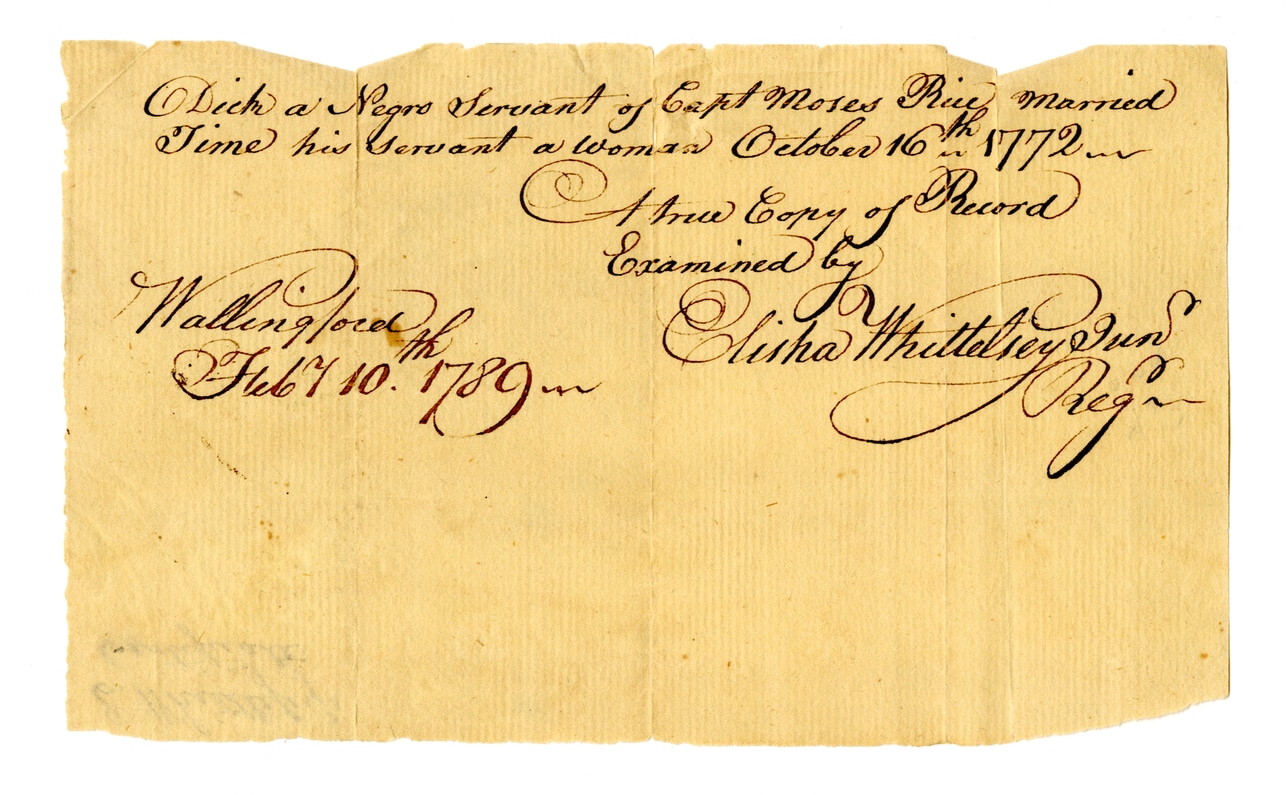 Dick a Negro Servant of Capt Moses Rice married
Time his servant a woman October 16th 1772
A true Copy of Record
Examined by
Elisha Whittelsey Junr
Regr
Wallingford
Feby 10th. 1789